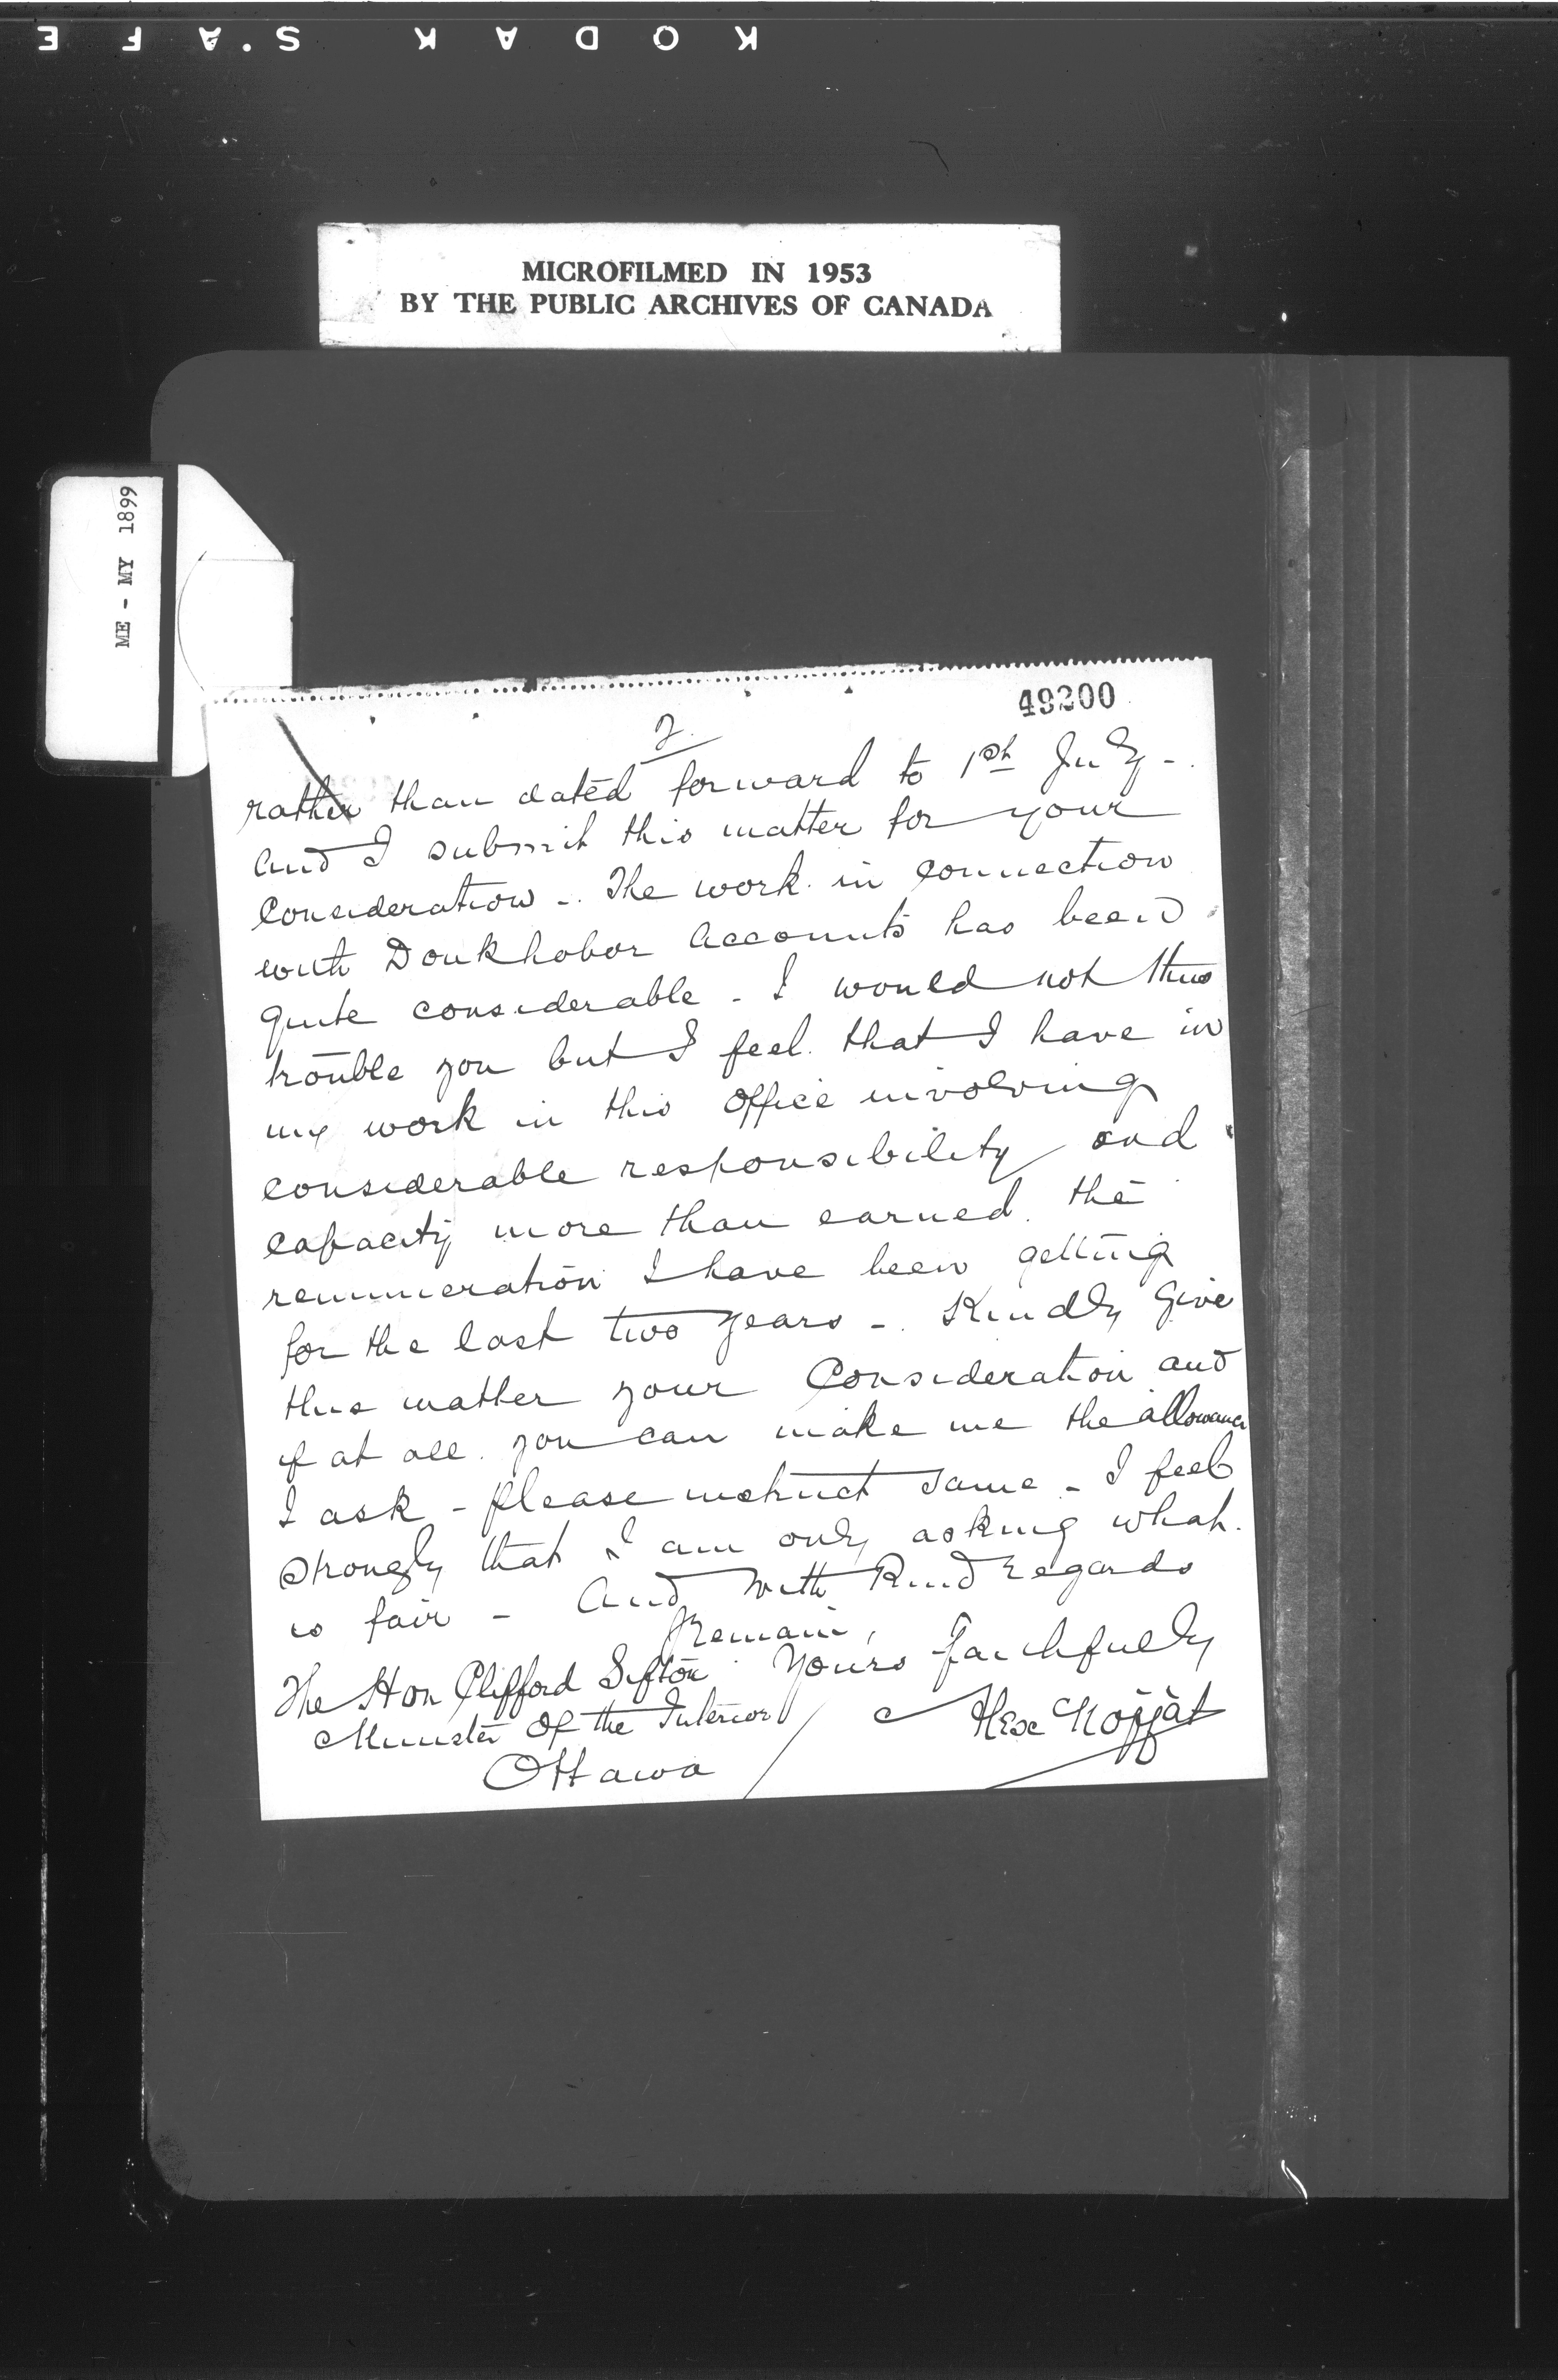 KODAK S'AFE
MICROFILMED IN 1953
BY THE PUBLIC ARCHIVES OF CANADA
ME - MY 1899
49200
2.
rather than dated forward to 1st July -
and I submit this matter for your
consideration - The work in connection
with Doukhobor accounts has been
quite considerable - I would not thus
trouble you but I feel that I have in
my work in this Office involving
considerable responsibility and
capacity more than earned the
remuneration I have been getting
for the last two years - Kindly Give
this matter your Consideration and
if at all you can make me the allowance
I ask - please instruct same - I feel
strongly that I am only asking what
is fair - And with Kind regards
Remain,
Yours faithfully
The Hon Clifford Sifton
Minister Of the Interior
Ottawa
Alex Moffat